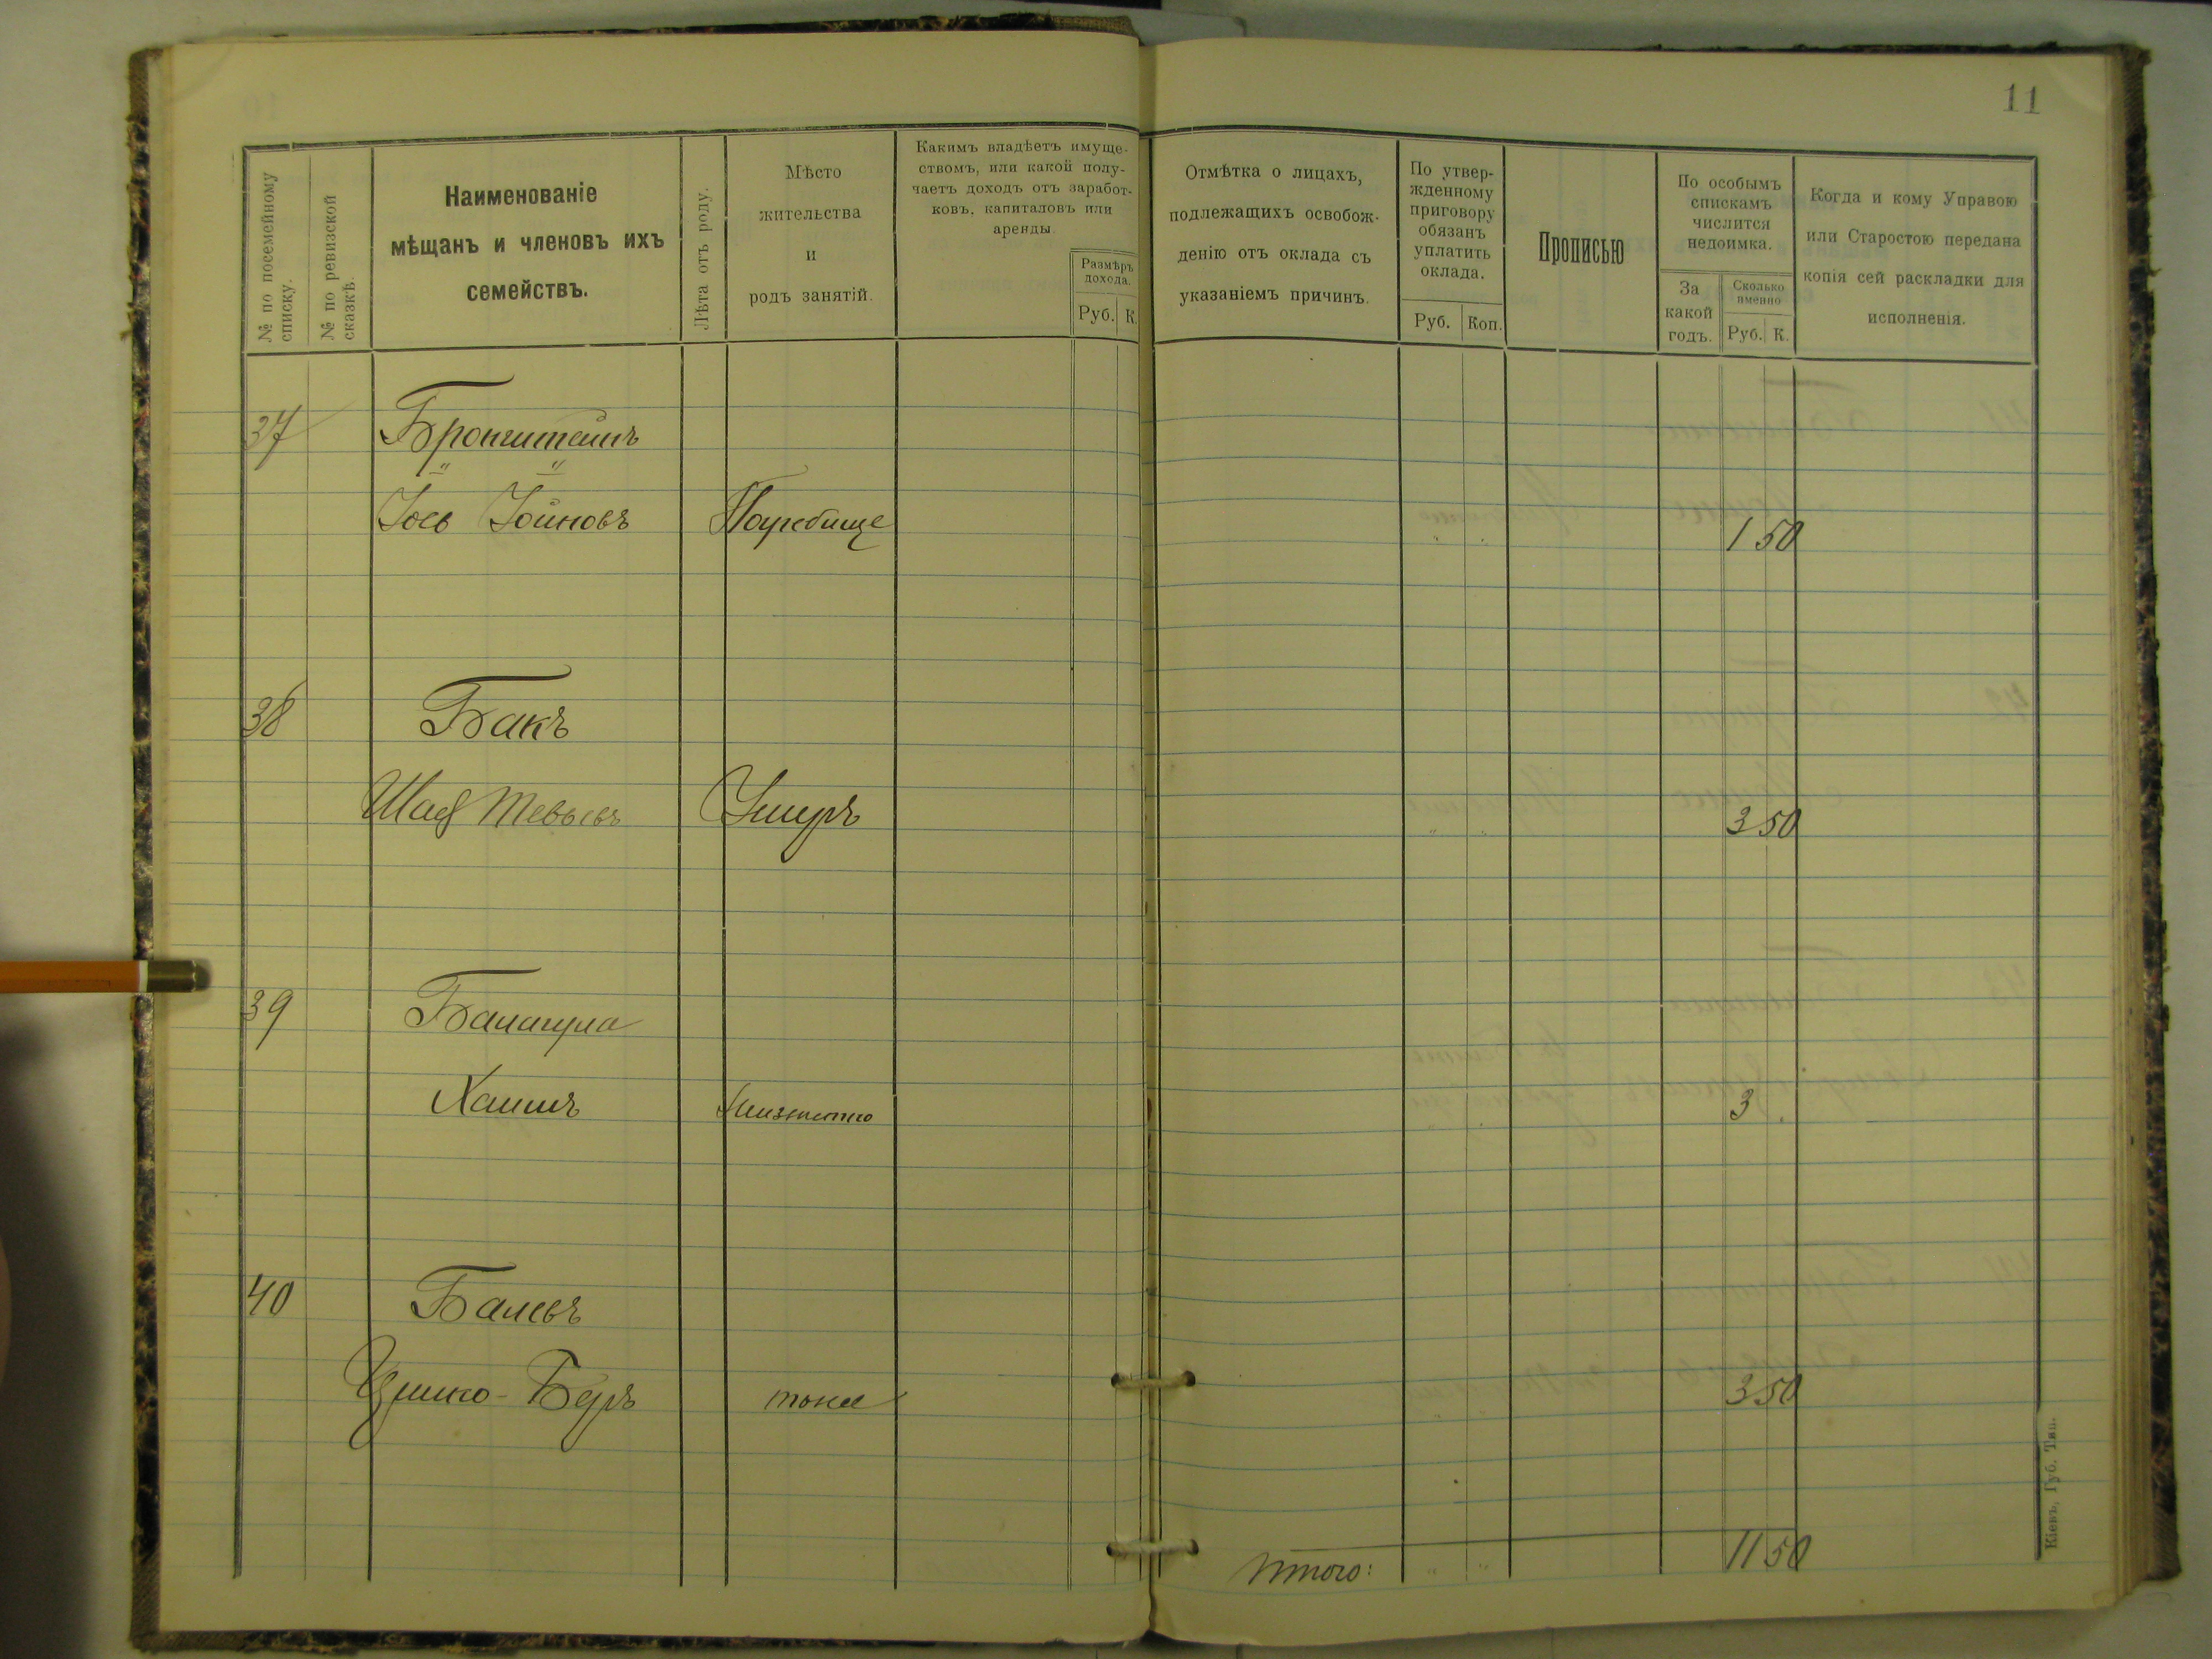 11
№ по посемейному списку.
№ по ревизской сказкѣ.
Наименованіе
мѣщанъ и членовъ ихъ
семействъ.
Лѣта отъ роду.
Мѣсто
жительства
и
родъ занятій.
Какимъ владѣетъ имуще-
ствомъ, или какой полу-
чаетъ доходъ отъ заработ-
ковъ, капиталовъ или
аренды.
Размѣръ
дохода.
Руб. К.
Отмѣтка о лицахъ,
подлежащихъ освобож-
денію отъ оклада съ
указаніемъ причинъ.
По утвер-
жденному
приговору
обязанъ
уплатить
оклада.
Руб. Коп.
Прописью
По особымъ
спискамъ
числится
недоимка.
За
какой
годъ.
Сколько
именно
Руб. К.
Когда и кому Управою
или Старостою передана
копія сей раскладки для
исполненія.
37 Бронштейнъ
Іось Іойновъ Погребище 1 50
38 Бакъ
Шая Тевьевъ Умеръ 3 50
39 Балагула
Хаимъ 3
40 Балевъ
Бер тоже 3 50
Итого: 11 50
Кіевъ, Губ. Тип.